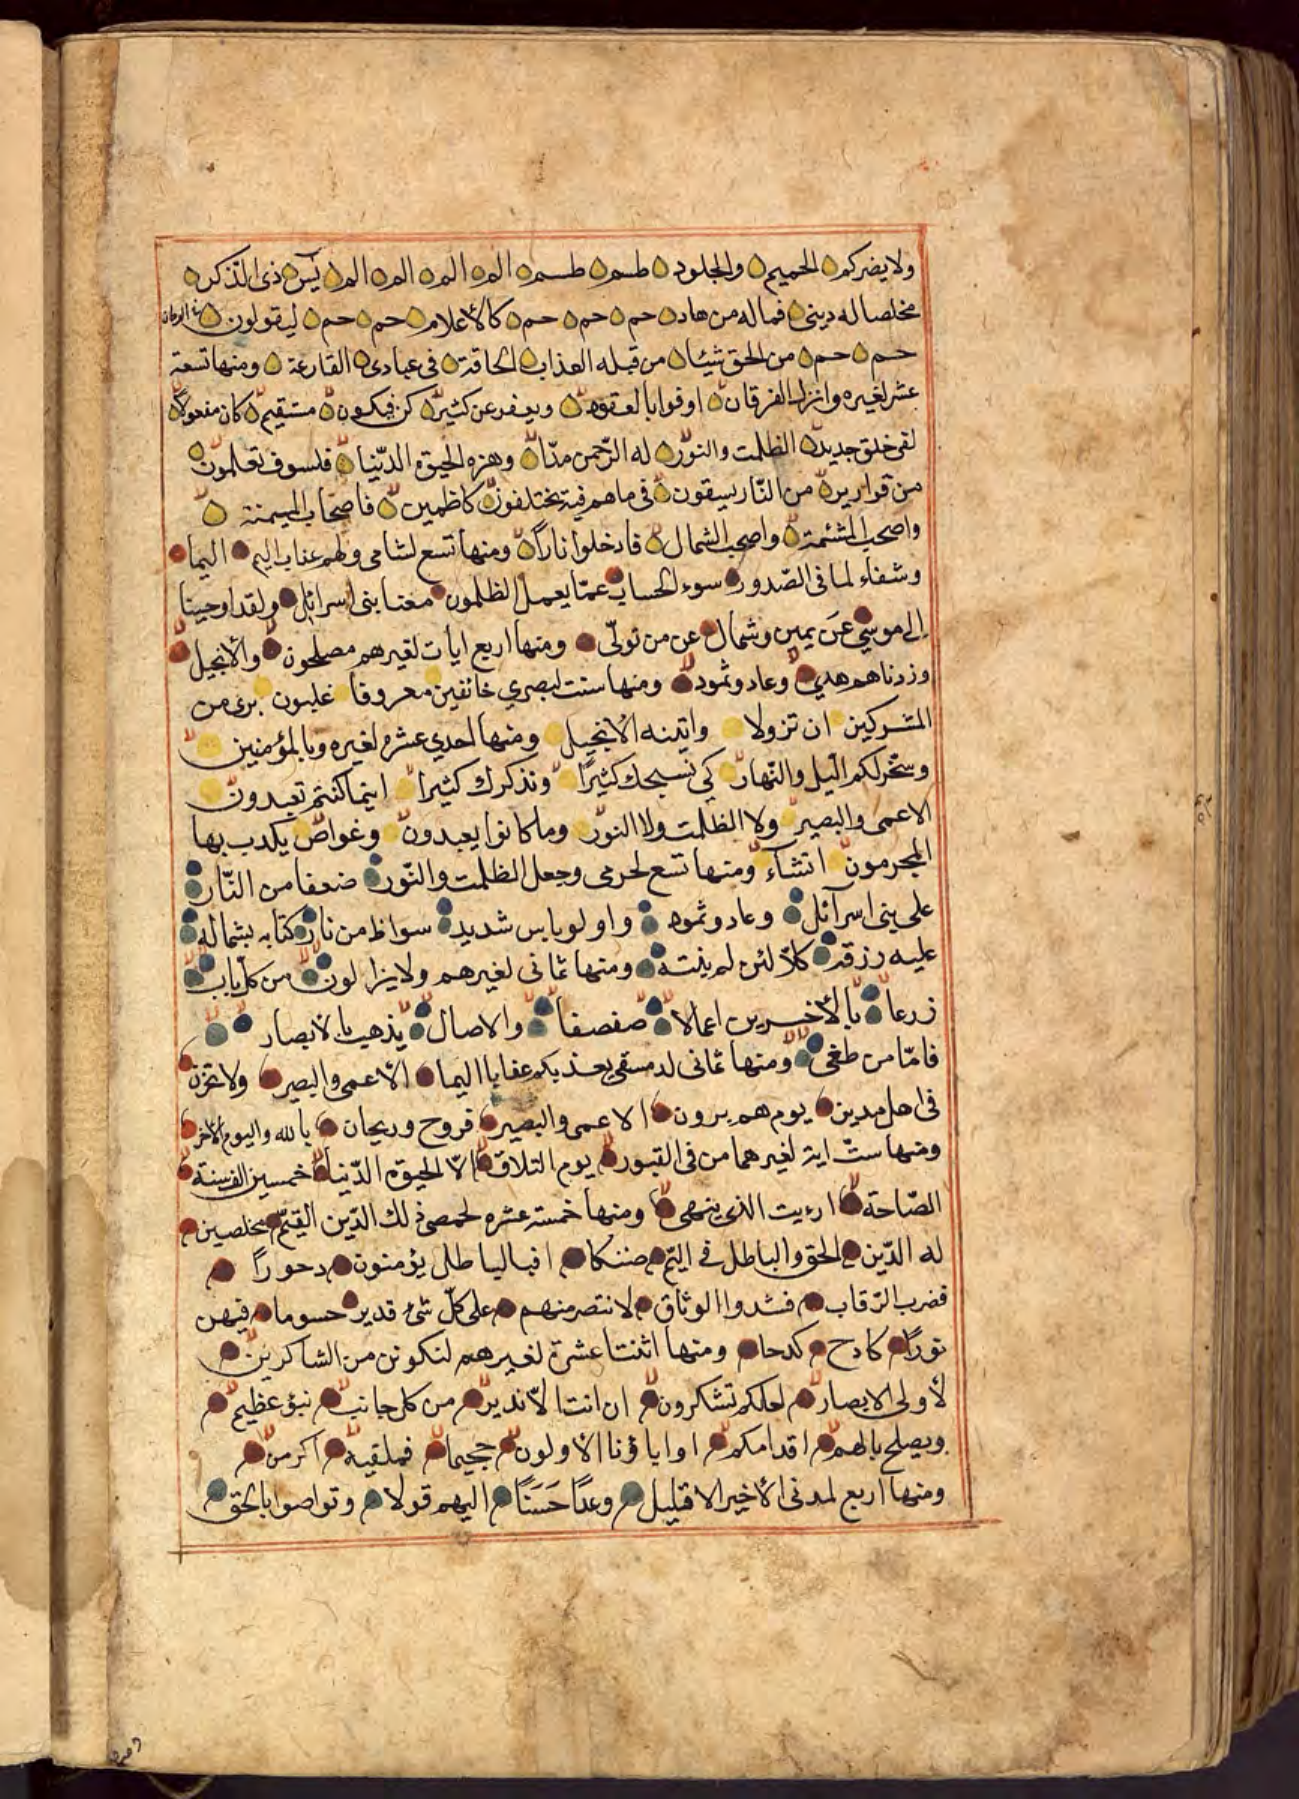 ولا يضركم الحميم والجلود طسم طسم الم الم الم الم يس ذى الذكر
مخلصا له دينى فما له من هاد حم حم حم كالأعلام حم حم ليقولون
حم حم من الحق شيئا من قبله العذاب الحاقة فى عبادى القارعة ومنها تسعة
عشر لغيره وانزل الفرقان اوفوا بالعقود ويعفو عن كثير كن فيكون مستقيم كان مفعولا
لفى خلق جديد الظلمت والنور له الرحمن مدّا وهزه الحيوة الدّنيا فلسوف تعلمون
من قوارير من النّار يسقون فى ما هم فيه يختلفون كاظمين فاصحاب الميمنة
واصحب المشئمة واصحب الشمال فادخلوا ناراً ومنها تسع لشامى ولهم عذاب اليم اليما
وشفاء لما فى الصّدور سوء الحساب عمّا يعمل الظلمون معنا بنى اسرائل ولقد اوحينا
إلى موسى عن يمين وشمال عن من تولّى ومنها اربع ايات لغيرهم مصلحون والأنجيل
وزدناهم هدى وعاد وثمود ومنها ست لبصرى خائفين معروفا غلبون برى من
المشركين ان تزولا واتينه الأنجيل ومنها احدى عشره لغيره وبالمؤمنين
وسخّر لكم اليل والنّهار كى نسبحك كثيرًا ونذكرك كثيرا اينما كنتم تعبدون
الاعمى والبصير ولا الظلمت ولا النور وما كانوا يعبدون وغواص يكذب بها
المجرمون انشاء ومنها تسع لحرمى وجعل الظلمت والنّور ضعفا من النّار
على بنى اسرآئل وعاد وثمود واولو باس شديد سواظ من نار كتابه بشماله
عليه رزقه كلّا لئن لم ينته ومنها ثمانى لغيرهم ولا يزالون من كل باب
زرعا بالأخسرين اعمالا صفصفا والاصال يذهب بالأبصار
فامّا من طغى ومنها ثمانى لدمشقى يعذبكم عذابا اليما الأعمى والبصير ولا تحزن
فى اهل مدين يوم هم برون الاعمى والبصير فروح وريحان بالله واليوم الأخر
ومنها ستّ اية لغيرهما من فى القبور يوم التلاق الّا الحيوة الدّنيا خمسين الف سنة
الصّاخة ارءيت الذى ينهى ومنها خمسة عشره لحمصى ذلك الدّين القيّم مخلصين
له الدّين الحق والباطل فى اليّم ضنكا افبالباطل يؤمنون دحوراً
فضرب الرّقاب فشدوا الوثاق لانتصر منهم على كلّ شئ قدير حسوما فيهن
نوراً كادح كدحا ومنها اثنتا عشرة لغيرهم لنكونن من الشاكرين
لأولى الابصار لعلكم تشكرون ان انت الّا نذير من كل جانب نبؤ عظيم
ويصلح بالهم اقدامكم اواباؤنا الأولون جحيما فملقيه اكرمن
ومنها اربع لمدنى الأخير الا قليل وعدًا حَسَنًا اليهم قولا وتواصوا بالحق